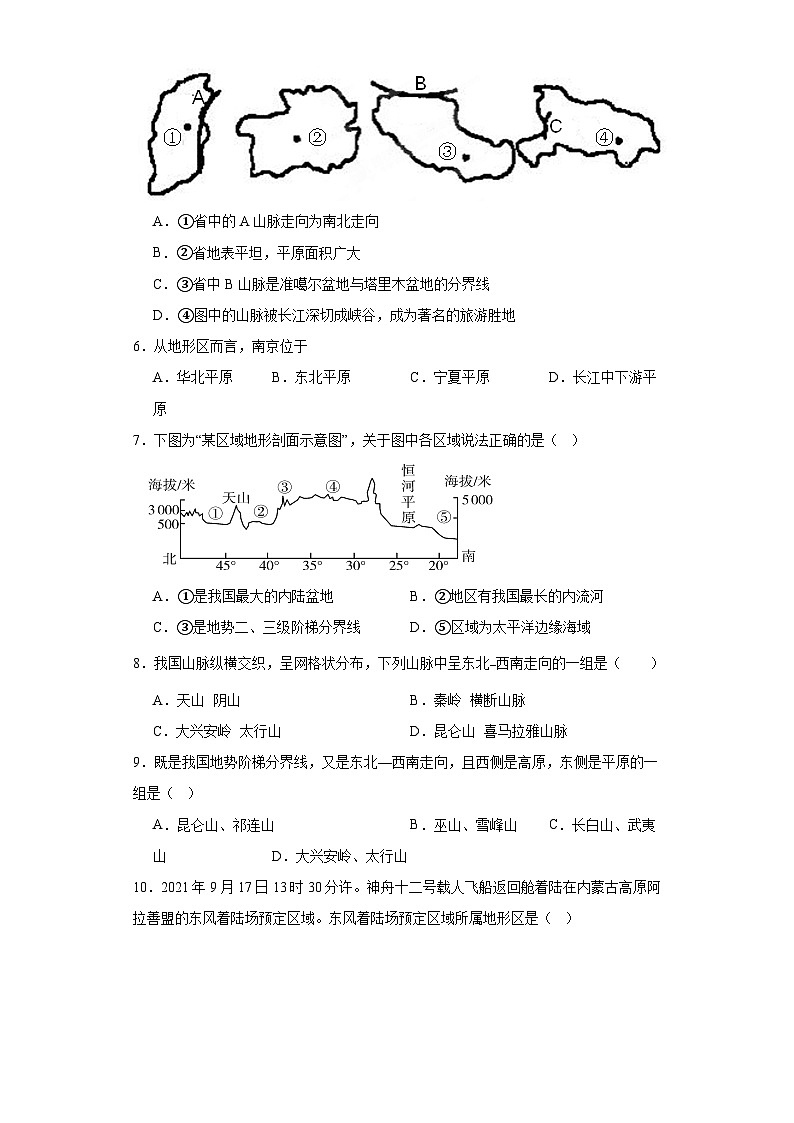 A
①
②
B
③
C
④
A．①省中的 A 山脉走向为南北走向
B．②省地表平坦，平原面积广大
C．③省中 B 山脉是准噶尔盆地与塔里木盆地的分界线
D．④图中的山脉被长江深切成峡谷，成为著名的旅游胜地
6．从地形区而言，南京位于
A．华北平原 B．东北平原 C．宁夏平原 D．长江中下游平
原
7．下图为“某区域地形剖面示意图”，关于图中各区域说法正确的是（ ）
海拔/米
3 000
500
北
①
天山
②
③
④
恒河平原
⑤
海拔/米
5 000
南
45° 40° 35° 30° 25° 20°
A．①是我国最大的内陆盆地 B．②地区有我国最长的内流河
C．③是地势二、三级阶梯分界线 D．⑤区域为太平洋边缘海域
8．我国山脉纵横交织，呈网格状分布，下列山脉中呈东北–西南走向的一组是（ ）
A．天山 阴山 B．秦岭 横断山脉
C．大兴安岭 太行山 D．昆仑山 喜马拉雅山脉
9．既是我国地势阶梯分界线，又是东北—西南走向，且西侧是高原，东侧是平原的一
组是（ ）
A．昆仑山、祁连山 B．巫山、雪峰山 C．长白山、武夷
山 D．大兴安岭、太行山
10．2021 年 9 月 17 日 13 时 30 分许。神舟十二号载人飞船返回舱着陆在内蒙古高原阿
拉善盟的东风着陆场预定区域。东风着陆场预定区域所属地形区是（ ）